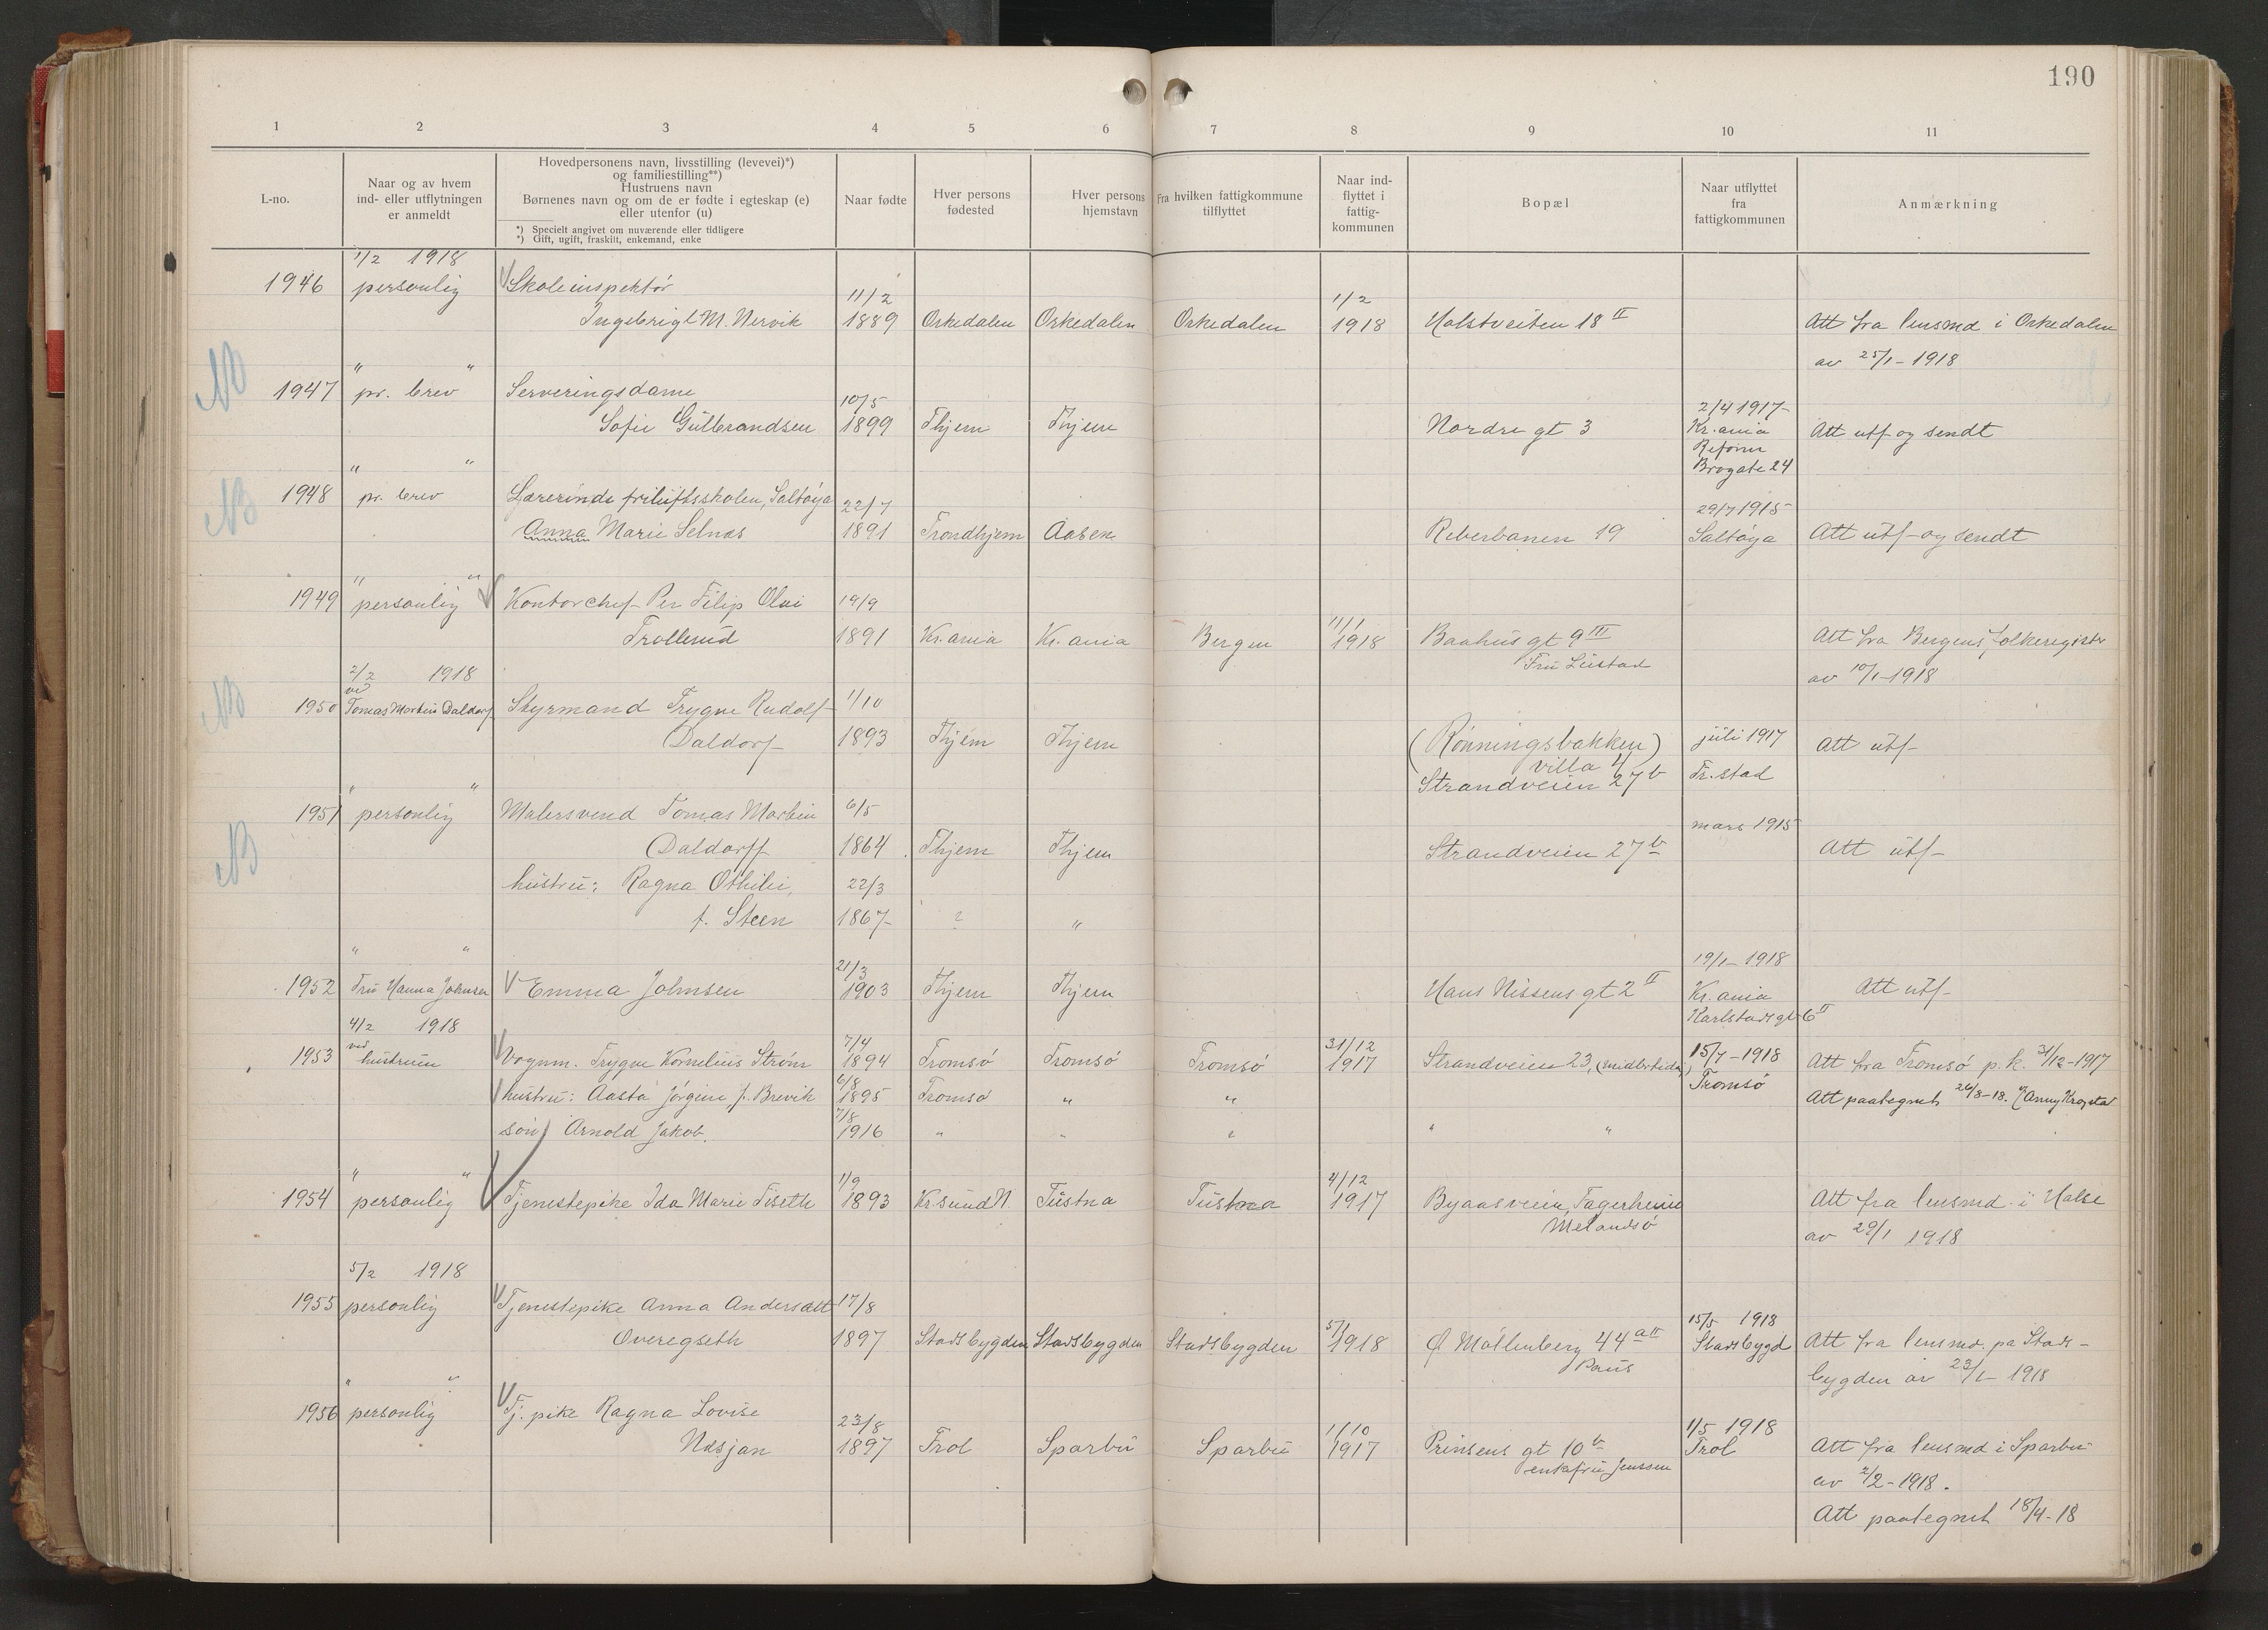 190
1 2 3 4 5 6 7 8 9 10 11
L-no.
Naar og av hvem
ind- eller utflytningen
er anmeldt
Hovedpersonens navn, livsstilling (levevei)*)
og familiestilling**)
Hustruens navn
Børnenes navn og om de er fødte i egteskap (e)
eller utenfor (u)
*) Specielt angivet om nuværende eller tidligere
*) Gift, ugift, fraskilt, enkemand, enke
Naar fødte
Hver persons
fødested
Hver persons
hjemstavn
Fra hvilken fattigkommune
tilflyttet
Naar ind-
flyttet i
fattig-
kommunen
Bopæl
Naar utflyttet
fra
fattigkommunen
Anmærkning
1/2 1918
1946 personlig Skoleinspektör
11/2 1/2
Ingebrigt M. Nervik 1889 Orkedalen Orkedalen Orkedalen 1918 Holstveiten 18 II Att fra lensmd i Orkedalen
av 25/1-1918
" "
NB 1947 pr. brev Serveringsdame
10/5 2/4 1917
Sofie Gulbrandsen 1899 Thjem Thjem Nordre gt 3 Kr.ania Att utf og sendt
Reform
Brogate 24
" "
NB 1948 pr. brev Lærerinde friluftsskolen, Saltöya 22/7
29/7 1915
Anna Marie Selnes 1891 Trondhjem Aasen Reberbanen 19 Saltöya Att utf og sendt
" "
1949 personlig Kontorchef Per Filip Olai 19/9
11/1
Trollerud 1891 Kr.ania Kr.ania Bergen 1918 Baahus gt 9 III Att fra Bergens folkeregister
Fru Lustad
av 10/1-1918
2/2 1918
ved
NB 1950 Tomas Martin Daldorf Styrmand Trygve Rudolf 1/10
Daldorf 1893 Thjem Thjem (Rönningsbakken) juli 1917 Att utf
villa 4
Strandveien 27b Fr.stad
" "
1951 personlig Malersvend Tomas Martin 6/5
mars 1915
NB Daldorff 1864 Thjem Thjem Strandveien 27b Att utf
hustru: Ragna Othilie, 22/3
f. Steen 1867 ? "
" "
21/3 19/1-1918
1952 Fru Hanna Johnsen Emma Johnsen 1903 Thjem Thjem Hans Nissens gt 2 II Kr.ania Att utf
Karlstadsgt 6 II
4/2 1918
ved 7/4 31/12
1953 hustruen Vognm. Trygve Kornelius Ström 1894 Tromsö Tromsö Tromsö 1917 Strandveien 23, (midlertidig) 15/7-1918 Att fra Tromsö p.k. 31/12-1917
6/8 Tromsö
hustru: Aasta Jörgine f. Brevik 1895 Tromsö " " Att paategnet 26/8-18.
7/8
sön Arnold Jakob. 1916 " " " " "
" "
1/9 4/12
1954 personlig Tjenestepike Ida Marie Fiseth 1893 Kr.sund N. Tustna Tustna 1917 Byaasveien, Fagerheim Att fra lensmd. i Halse
Melandsö
av 29/1 1918
5/2 1918
1955 personlig Tjenestepike Anna Andersdtt 17/8
5/1 15/5 1918
Overegseth 1897 Stadsbygden Stadsbygden Stadsbygden 1918 Ø Möllenberg 44 a II Stadsbygd Att fra lensmd. pa Stads-
Paus
bygden av 23/1 1918
" "
1956 personlig Tj. pike Ragna Lovise
23/8 1/10 1/5 1918
Næsjan 1897 Frol Sparbu Sparbu 1917 Prinsens gt 10b Frol Att fra lensmd i Sparbu
enkefru Jenssen
av 2/2-1918.
Att paategnet 18/4-18